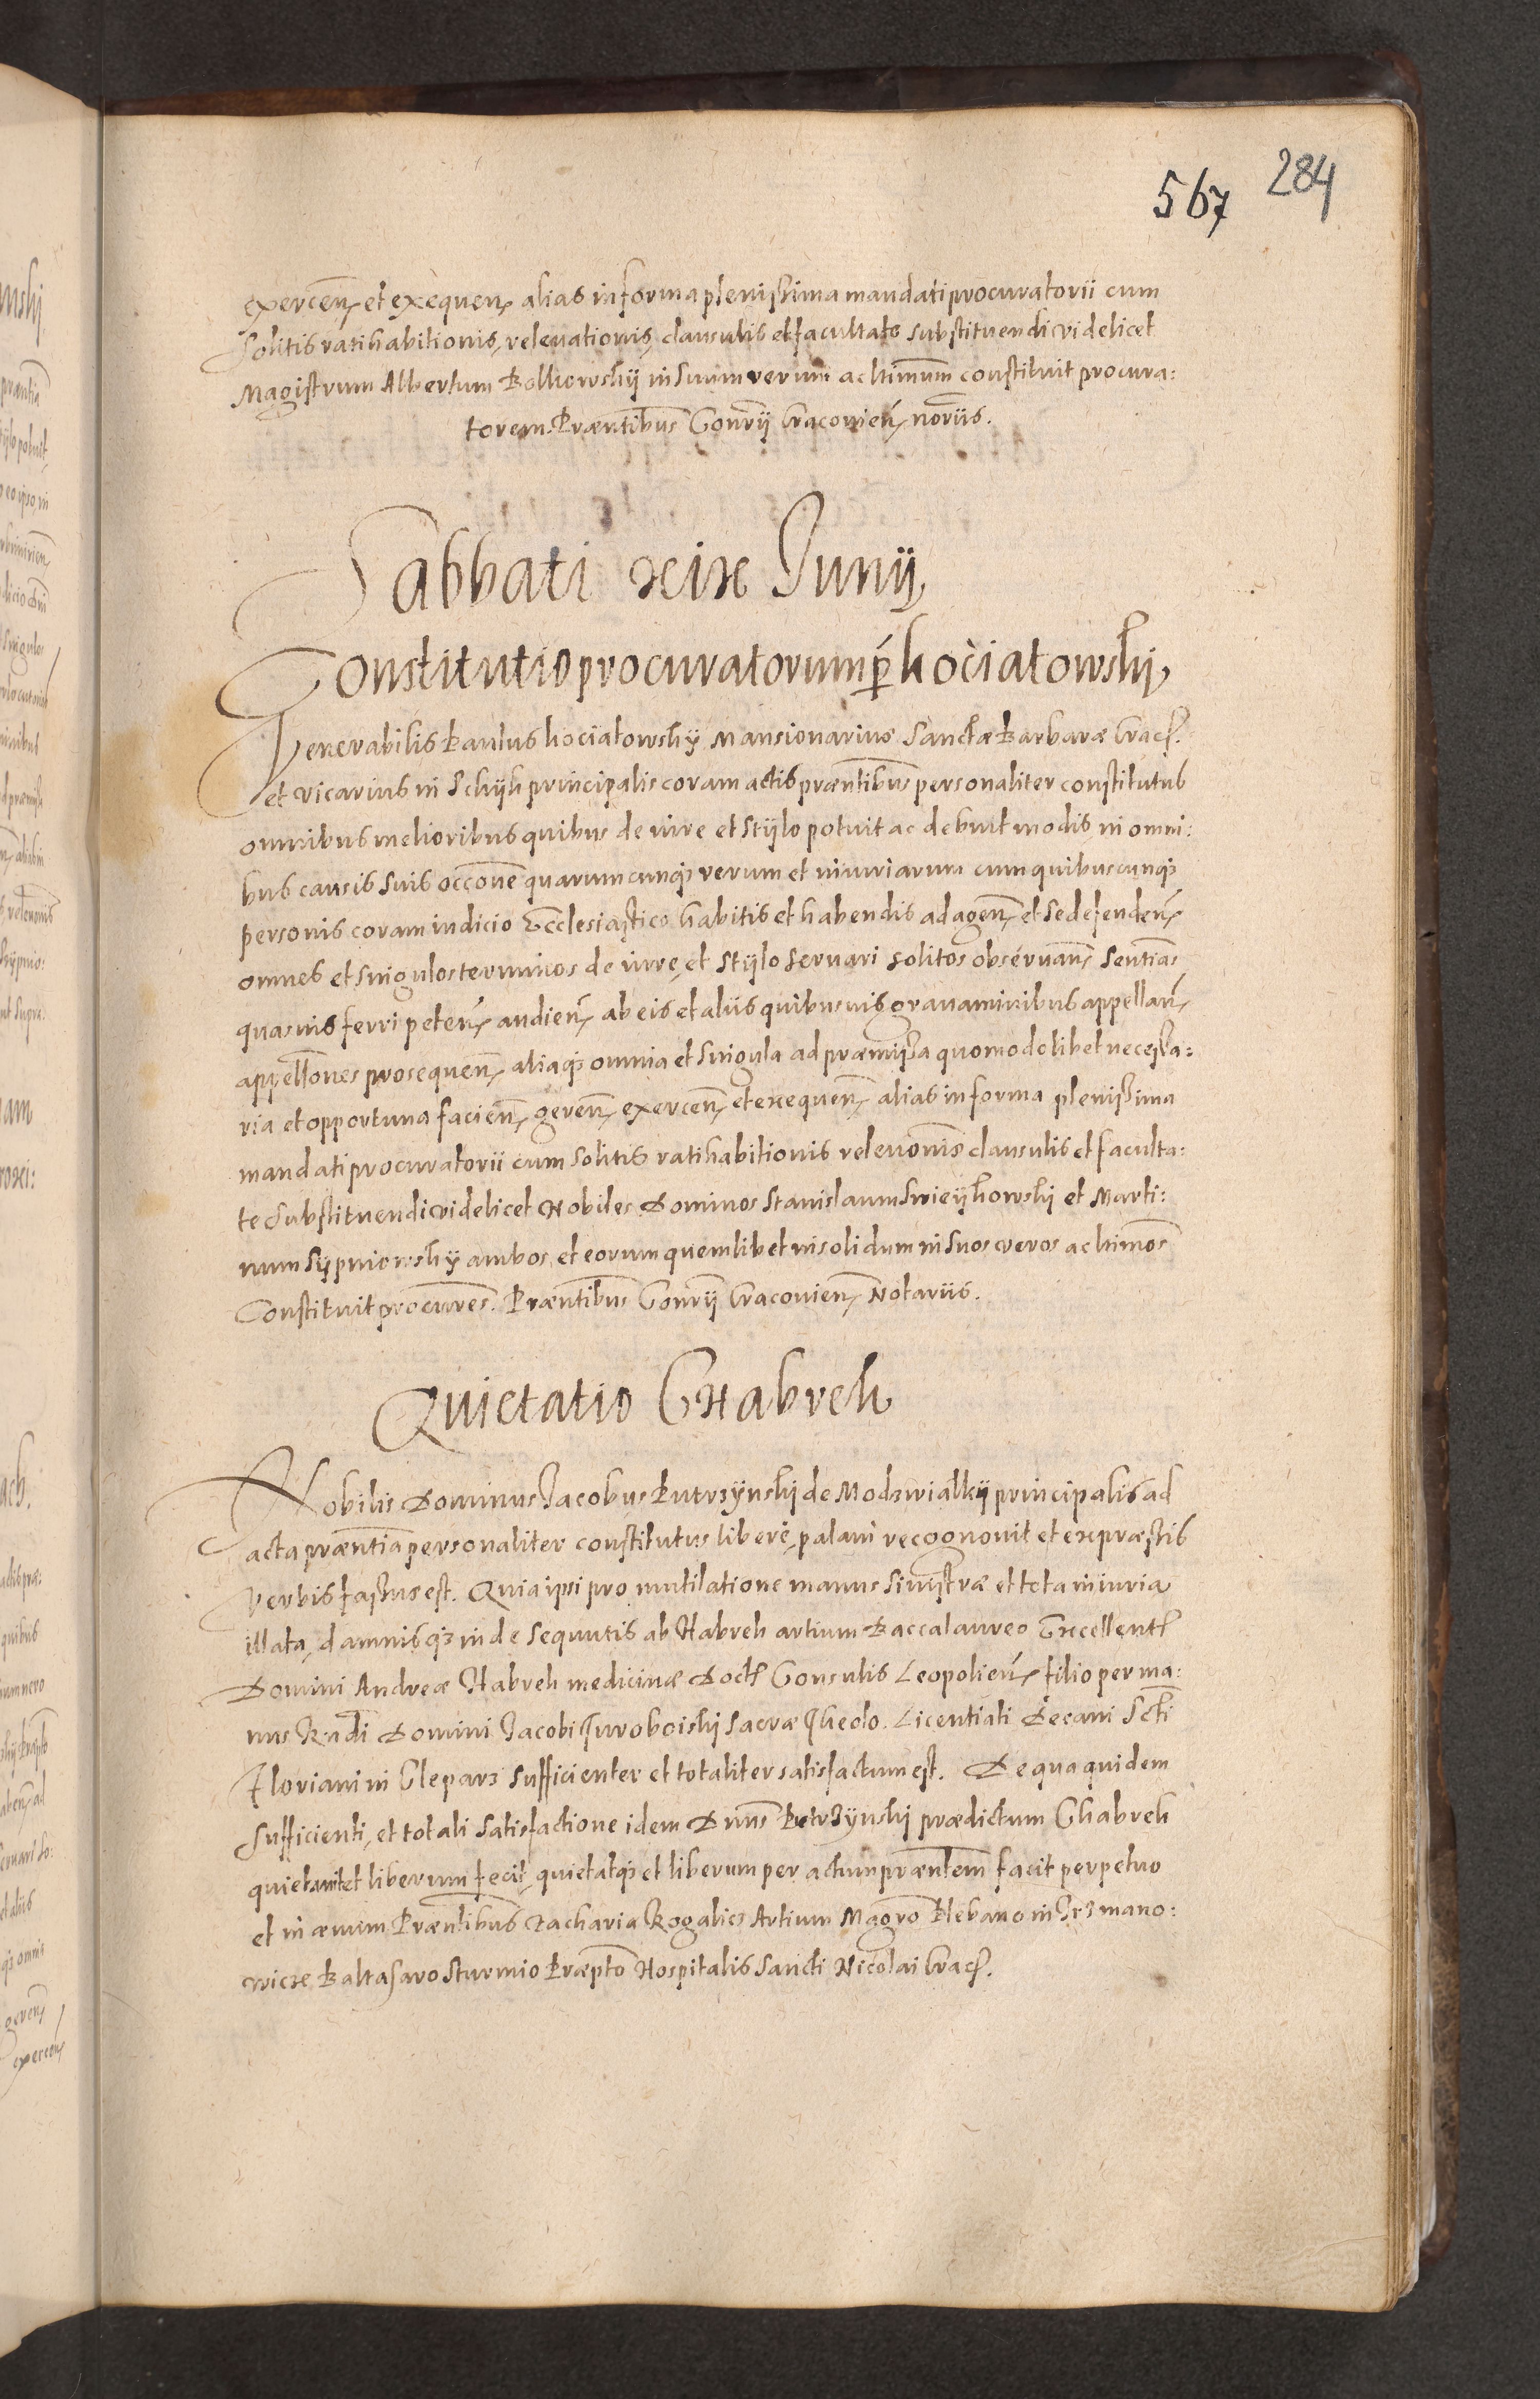 567 284
exercen̄ et exequen̄ alias in forma plenissima mandati procuratorii cum
solitis ratihabitionis, relevationis, clausulis et facultate substituendi videlicet
Magistrum Albertum in suum verum ac ltimum constituit procura:
torem. Præntibus Consrij Cracovien̄ noriis.
Sabbati xix Junij
Constitutio procuratorum per Kociatowskj
Venerabilis Paulus Kociatowskÿ Mansionarius Sanctæ Barbaræ Crac.
et vicarius in principalis coram actis præntibus personaliter constitutus
omnibus melioribus quibus de iure et stÿlo potuit ac debuit modis in omni:
bus causis suis occone quarumcunqꝫ rerum et iniuriarum cum quibuscunqꝫ
personis coram iudicio Ecclesiastico habitis et habendis ad agen̄ et se defenden̄
omnes et singulos terminos de iure, et stÿlo servari solitos observan̄ Sentias
quasvis ferri peten̄ audien̄ ab eis et aliis quibusvis gravaminibus appellan̄
appellones prosequen̄ aliaqꝫ omnia et singula ad præmissa quomodolibet necessa:
ria et opportuna facien̄ geren̄ exercen̄ et exequen̄ alias in forma plenissima
mandati procuratorii cum solitis ratihabitionis relevonis clausulis et faculta:
te substituendi videlicet Nobiles Dominos Stanislaum Swieÿkowskj et Marti:
num Sÿpniowskÿ ambos, et eorum quemlibet in solidum in suos veros ac ltimos
Constituit procures. Præntibus Consrij Cracovien̄ Notariis.
Quietatio Chabreh
Nobilis Dominus Jacobus Putrzÿnskj de principalis ad
acta præntia personaliter constitutus libere, palam recognovit et expræssis
verbis fassus est. Quia ipsi pro mutilatione manus sinistræ et tota iniuria
illata, damnisqꝫ inde sequutis ab Habreh artium Baccalaureo Excellentis
Domini Andreæ Habreh medicinæ Doct. Consulis Leopolien̄ filio per ma:
nus Rndi Domini Jacobi Turoboiskj Sacræ Theolo. Licentiati Decani Scti
Floriani in Clepars sufficienter et totaliter satisfactum est. De qua quidem
sufficienti, et totali satisfactione idem Dnus Putrzÿnskj prædictum Chabreh
quietavit et liberum fecit, quietatqꝫ et liberum per actum præntem facit perpetuo
et in ævum. Præntibus Zacharia Rogalics Artium Magro Plebano in
Baltasaro Sturmio Præpto Hospitalis Sancti Nicolai Crac.